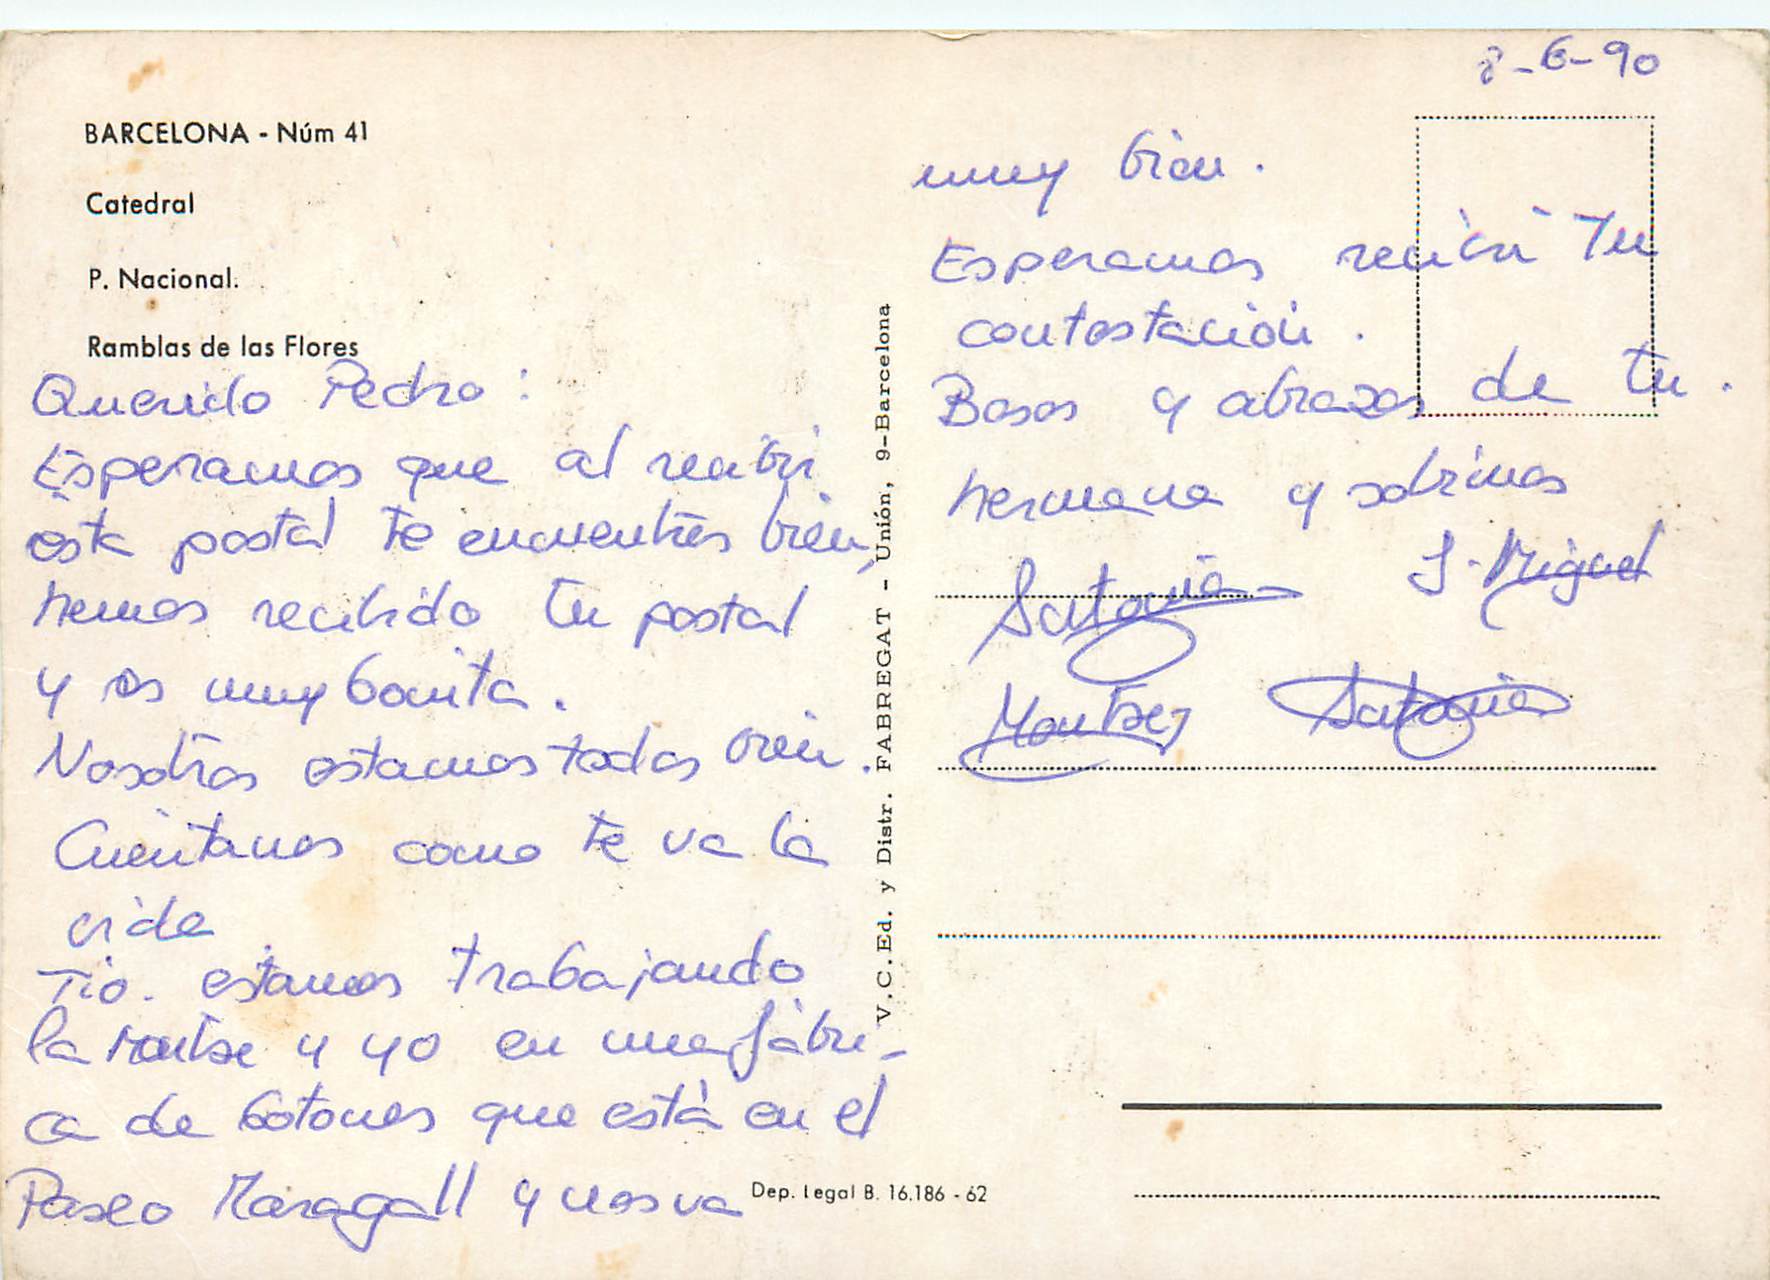 8-6-90
BARCELONA - Núm 41
Catedral
P. Nacional.
Ramblas de las Flores
Querido Pedro:
Esperamos que al recibir
esta postal te encuentres bien,
hemos recibido tu postal
y es muy bonita.
Nosotros estamos todos bien.
Cuéntanos como te va la
vida
Tío. estamos trabajando
la Montse y yo en una fábri-
ca de botones que está en el
Paseo Maragall y nos va
muy bien.
Esperamos recibir Tu
contestación.
Besos y abrazos de tu.
hermana y sobrinos
J. Miguel
Montse
V.C.Ed. y Distr. FABREGAT - Unión, 9-Barcelona
Dep. Legal B. 16.186 - 62